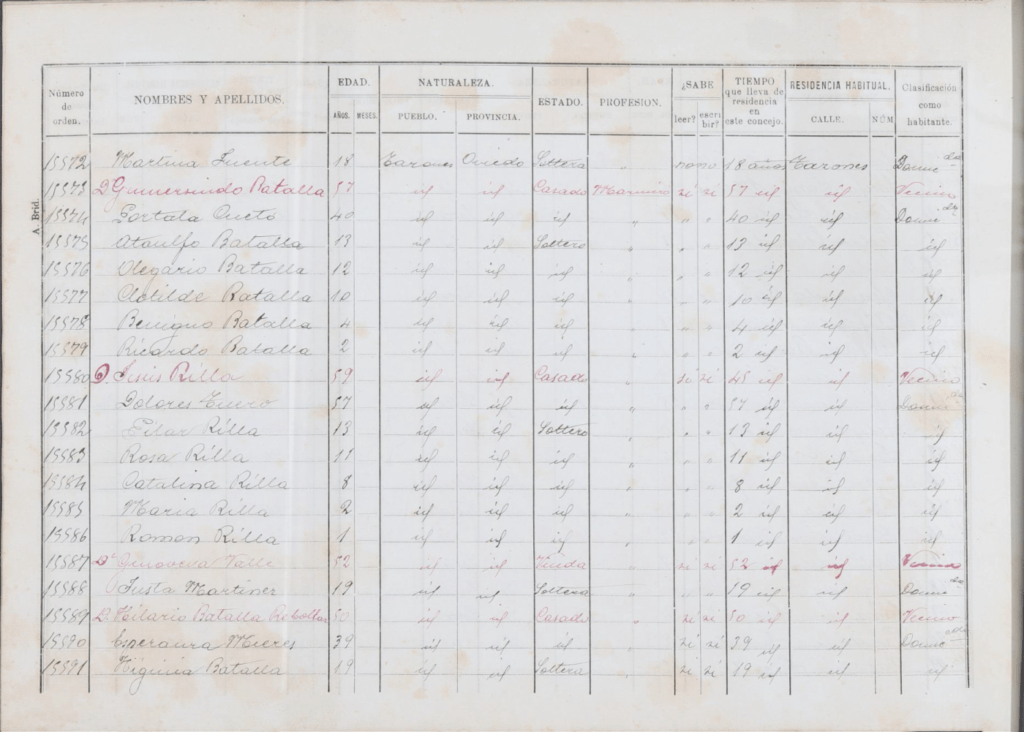 Número de orden. NOMBRES Y APELLIDOS. EDAD. AÑOS. MESES. NATURALEZA. PUEBLO. PROVINCIA. ESTADO. PROFESION. ¿SABE leer? escribir? TIEMPO que lleva de residencia en este concejo. RESIDENCIA HABITUAL. CALLE. NÚM. Clasificación como habitante.
A. Brid.
15572 Martina Fuente 18 Tarones Oviedo Soltera " no no 18 años Tarones Domic
15573 D. Gumersindo Batalla 57 id id Casado Marinero si si 57 id id Vecino
15574 Cueto 40 id id id " " " 40 id id Domic
15575 Ataulfo Batalla 13 id id Soltero " " " 13 id id id
15576 Olegario Batalla 12 id id id " " " 12 id id id
15577 Clotilde Batalla 10 id id id " " " 10 id id id
15578 Benigno Batalla 4 id id id " " " 4 id id id
15579 Ricardo Batalla 2 id id id " " " 2 id id id
15580 D. Rilla 59 id id Casado " si si 45 id id Vecino
15581 Dolores 57 id id id " " " 57 id id Domic
15582 Pilar Rilla 13 id id Soltero " " " 13 id id id
15583 Rosa Rilla 11 id id id " " " 11 id id id
15584 Catalina Rilla 8 id id id " " " 8 id id id
15585 Maria Rilla 2 id id id " " " 2 id id id
15586 Roman Rilla 1 id id id " " " 1 id id id
15587 Dª Genoveva Valle 52 id id Viuda " si si 52 id id Vecina
15588 Justa Martinez 19 id id Soltera " " " 19 id id Domic
15589 D. Hilario Batalla 50 id id Casado " si si 50 id id Vecino
15590 Esperanza Mieres 39 id id id " si si 39 id id Domic
15591 Higinia Batalla 19 id id Soltera " si si 19 id id id